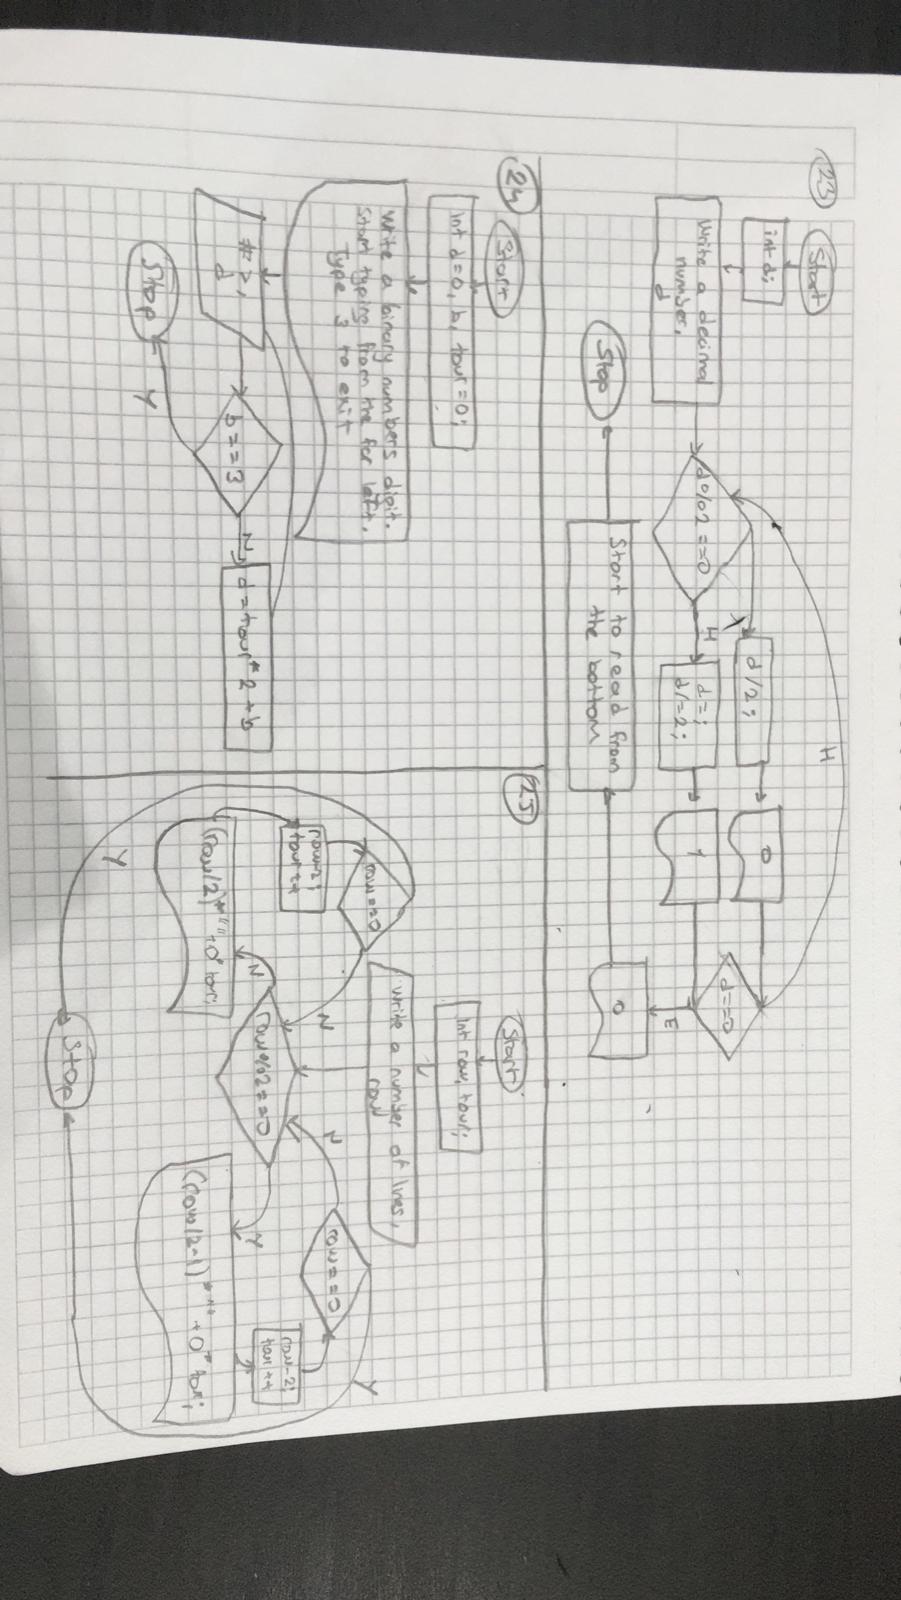 23
Start
int d;
Write a decimal
number,
d
d%2==0
H
d/2;
d=;
d/=2;
0
1
H
d==0
E
0
Start to read from
the bottom
Stop
24
Start
int d=0, b, tour=0;
Write a binary numbers digit.
Start typing from the far left.
Type 3 to exit
b==3
N
d=tour*2+b
Y
Stop
25
Start
int row, tour;
Write a number of lines,
row
row%2==0
N
Y
(row/2)*" "+0*tour;
tour++
row==0
N
Y
(row/2-1)*" "+0*tour;
row-2;
tour++
row==0
N
Y
Stop